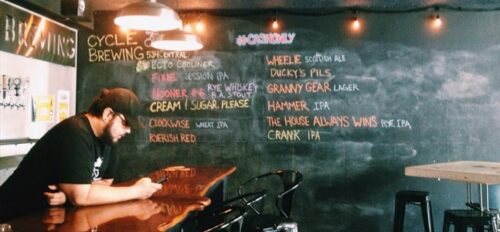 BREWING
CYCLE
BREWING 534 CENTRAL
#CASHONLY
ECTO COOLINER
FIXIE SESSION IPA
NOONER #6 RYE WHISKEY
B.A. STOUT
CREAM & SUGAR, PLEASE
CLOCKWISE WHEAT IPA
RYERISH RED
WHEELIE SCOTTISH ALE
DUCKY'S PILS
GRANNY GEAR LAGER
HAMMER IPA
THE HOUSE ALWAYS WINS RYE IPA
CRANK IPA